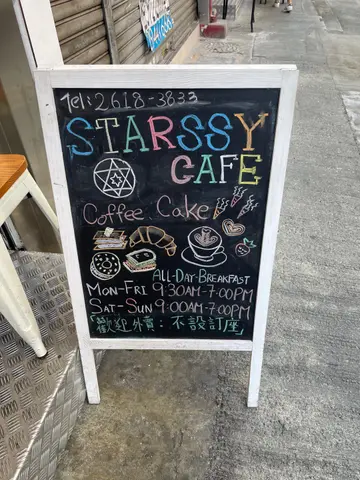 Tel: 2618-3833
STARSSY
CAFE
Coffee . Cake
ALL-DAY-BREAKFAST
MON-FRI 9:30AM-7:00PM
SAT-SUN 9:00AM-7:00PM
「歡迎外賣：不設訂座」